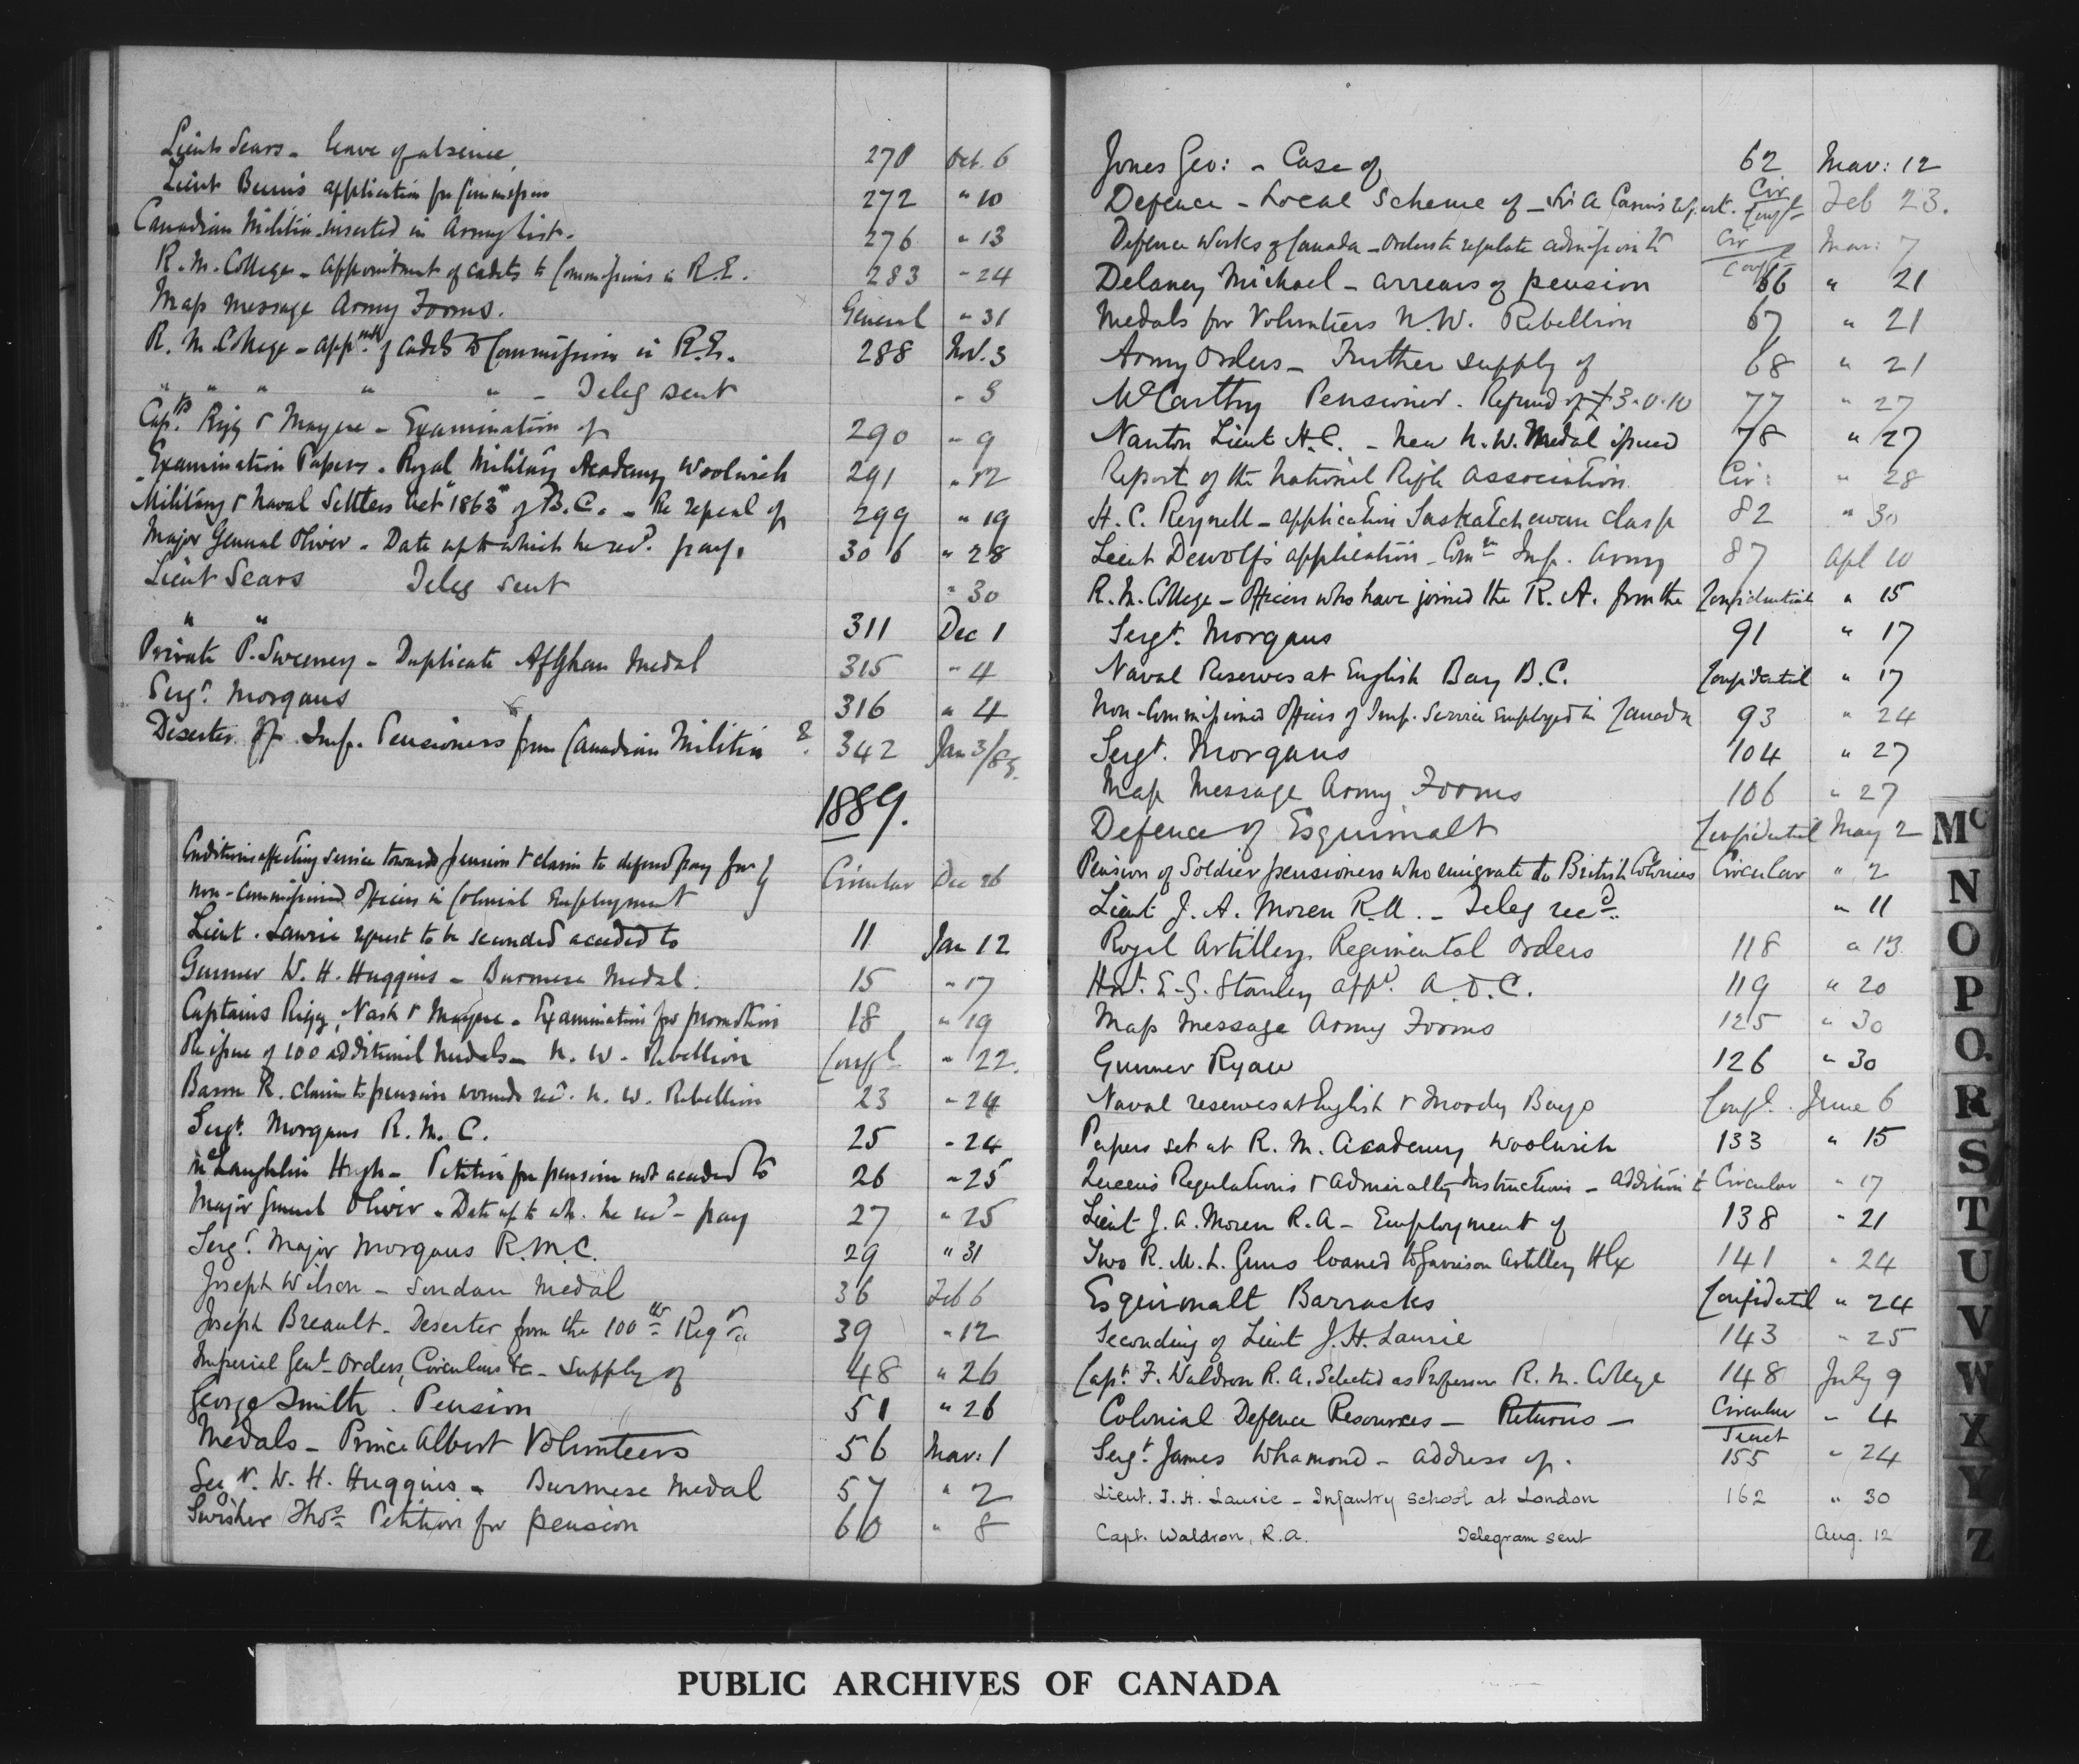 Lieut Sears - leave of absence 270 Oct. 6
Lieut application for Commission 272 " 10
Canadian Militia inserted in Army list. 276 " 13
R.M. College - Appointment of cadets to Commissions in R.E. 283 " 24
Map message Army Forms. General " 31
R.M. College - appmt of cadets to Commissions in R.E. 288 Nov. 3
" " " " " - Teleg sent " 3
Capts. Rigg & Mayne - Examination of 290 " 9
Examination Papers. Royal Military Academy Woolwich 291 " 12
Military & Naval Settlers Act "1863" of B.C. - Re repeal of 299 " 19
Major General Oliver - Date up to which he recd. pay. 306 " 28
Lieut Sears Teleg sent " 30
" " 311 Dec 1
Private P. Sweeney - Duplicate Afghan Medal 315 " 4
Sergt. Morgans 316 " 4
Deserter Imp. Pensioners from Canadian Militia 342 Jan 3/89.
1889.
Conditions affecting service towards pension & claim to deferred pay for }
non-commissioned officers in Colonial Employment } Circular Dec 26
Lieut. Laurie request to be seconded acceded to 11 Jan 12
Gunner W. H. Huggins - Burmese Medal. 15 " 17
Captains Rigg, Nash & Mayne - Examination for promotion 18 " 19
Re issue of 100 additional medals - N. W. Rebellion Confl " 22.
Baron R. claim to pension wounds recd. N. W. Rebellion 23 " 24
Sergt. Morgans R. M. C. 25 " 24
McLaughlin Hugh - Petition for pension not acceded to 26 " 25
Major General Oliver - Date up to wh. he recd - pay 27 " 25
Sergt. Major Morgans R.M.C. 29 " 31
Joseph Wilson - Soudan Medal 36 Feb 6
Joseph Breault - Deserter from the 100th Regt 39 " 12
Imperial Genl. Orders, Circulars &c - supply of 48 " 26
George Smith. Pension 51 " 26
Medals - Prince Albert Volunteers 56 Mar: 1
W. H. Huggins - Burmese Medal 57 " 2
Swisher Thos. Petition for pension 60 " 8
Jones Geo: - Case of 62 Mar: 12
Defence - Local Scheme of - Sir A report. Cir Confl Feb 23.
Defence Works of Canada - Orders to regulate admission to Cir Confl Mar: 7
Delaney Michael - arrears of pension 66 " 21
Medals for Volunteers N.W. Rebellion 67 " 21
Army Orders - Further supply of 68 " 21
McCarthy Pensioner. Refund of £3.0.10 77 " 27
Nanton Lieut H.C. - New N.W. Medal issued 78 " 27
Report of the National Rifle Association Cir: " 28
H. C. Reynell - application Saskatchewan clasp 82 " 30
Lieut Dewolf's application - Comn Imp. Army 87 Apl 10
R.M. College - Officers who have joined the R. A. from the Confidential " 15
Sergt. Morgans 91 " 17
Naval Reserves at English Bay B.C. Confidential " 17
Non-Commissioned Officers of Imp. Service Employed in Canada 93 " 24
Sergt. Morgans 104 " 27
Map Message Army Forms 106 " 27
Defence of Esquimalt Confidential May 2
Pension of Soldier pensioners who emigrate to British Colonies Circular " 2
Lieut J. A. Moren R.A. - Teleg recd. " 11
Royal Artillery Regimental Orders 118 " 13
Hon. E. G. Stanley appd. A.D.C. 119 " 20
Map Message Army Forms 125 " 30
Gunner Ryan 126 " 30
Naval reserves at English & Moody Bays Confl. June 6
Papers set at R. M. Academy Woolwich 133 " 15
Queen's Regulations & Admiralty Instructions - addition to Circular " 17
Lieut J. A. Moren R.A - Employment of 138 " 21
Two R. M. L. Guns loaned to Garrison Artillery Hfx 141 " 24
Esquimalt Barracks Confidential " 24
Seconding of Lieut J. H. Laurie 143 " 25
Capt. F. Waldron R. A. Selected as Professor R. M. College 148 July 9
Colonial Defence Resources - Returns - Circular Secret " 4
Sergt. James Whamond - address of. 155 " 24
Lieut. J. H. Laurie - Infantry School at London 162 " 30
Capt. Waldron, R.A. Telegram sent Aug. 12
Mc
N
O
P
Q.
R
S
T
U
V
W
X
Y
Z
PUBLIC ARCHIVES OF CANADA